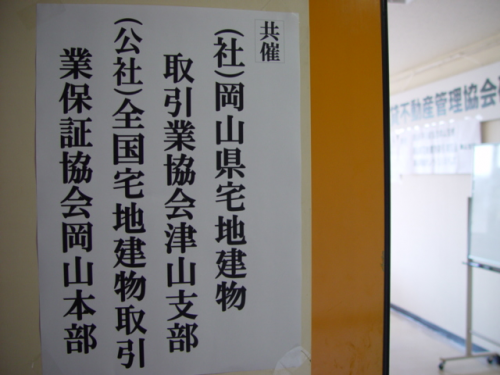 共催
(社)岡山県宅地建物
取引業協会津山支部
(公社)全国宅地建物取引
業保証協会岡山本部
不動産管理協会